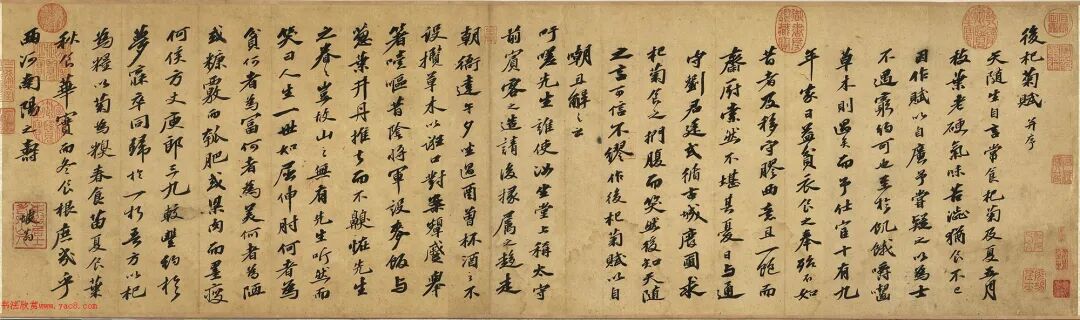 後杞菊賦 并序
天隨生自言常食杞菊及夏五月
枝葉老硬氣味苦澀猶食不已
因作賦以自廣予嘗疑之以為士
不遇窮約可也至於飢餓嚼齧
草木則過矣而予仕宦十有九
年家日益貧衣食之奉殆不如
昔者及移守膠西意且一飽而
齋廚索然不堪其憂日與通
守劉君廷式循古城廢圃求
杞菊食之捫腹而笑然後知天隨
之言可信不繆作後杞菊賦以自
嘲且解之云
吁嗟先生誰使汝坐堂上稱太守
前賓客之造請後掾屬之趨走
朝衙達午夕坐過酉曾杯酒之不
設攬草木以誑口對案顰蹙舉
箸噎嘔昔陰將軍設麥飯與
蔥葉井丹推去而不嗅怪先生
之眷眷豈故山之無有先生听然而
笑曰人生一世如屈伸肘何者為
貧何者為富何者為美何者為陋
或糠覈而瓠肥或粱肉而墨瘦
何侯方丈庾郎三九較豐約於
夢寐卒同歸於一朽吾方以杞
為糧以菊為糗春食苗夏食葉
秋食華實而冬食根庶幾乎
西河南陽之壽
书法欣赏www.yac8.com